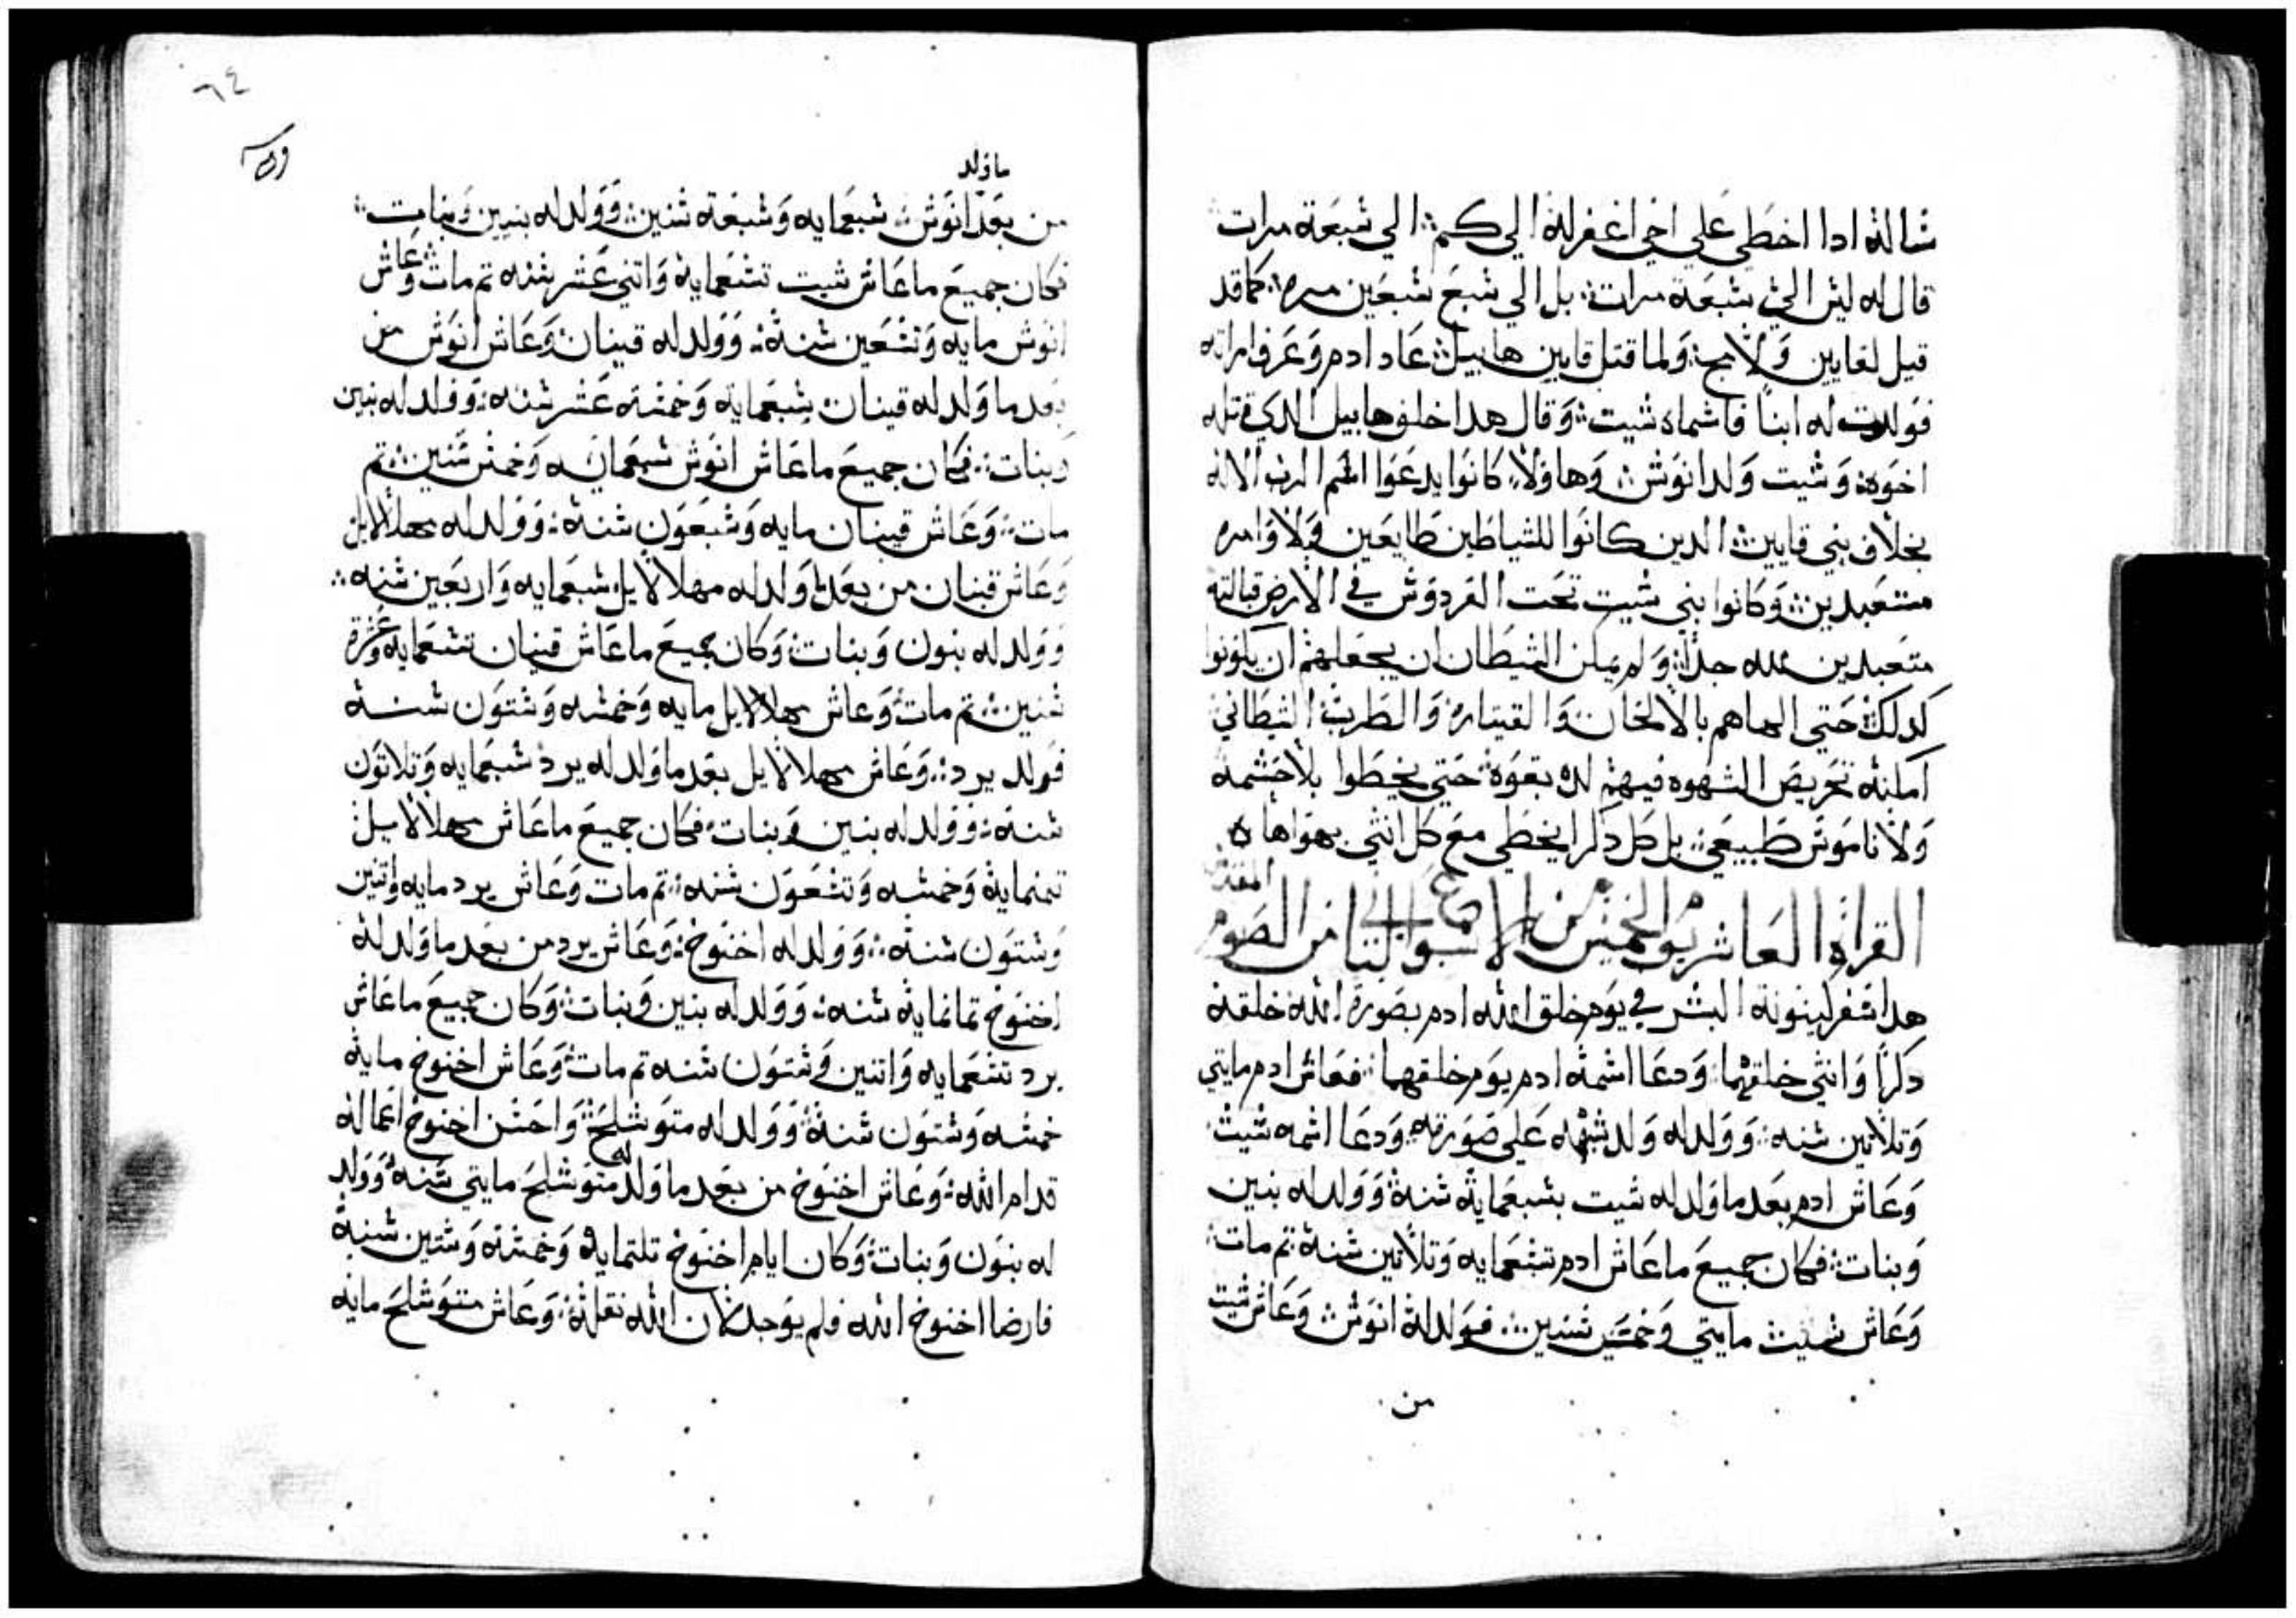 ساله ادا اخطي علي اخي اغفر له الي كم الي سبعة مرات
قال له ليس الي سبعة مرات بل الي سبع سبعين مره كما قد
قيل لقايين ولامج ولما قتل قايين هابيل عاد ادم وعرف امراته
فولدت له ابنا فاسماه شيت وقال هدا خلف هابيل الدي قتله
اخوه وشيت ولد انوش وهاولاء كانوا يدعوا اسم الرب الاله
بخلاف بني قايين الدين كانوا للشياطين طايعين ولاوامره
متعبدين وكانوا بني شيت تحت الفردوس في الارض قبالته
متعبدين لله جدا ولم يمكن الشيطان ان يجعلهم ان يكونوا
كدلك حتي الهاهم بالالحان والقيتاره والطرب الشيطاني
امكنه تحريض الشهوه فيهم بقوة حتي يخطوا بلا حشمه
ولا ناموس طبيعي بل كل دكر يخطي مع كل انثي يهواها
المقدس
القراة العاشر يوم الخميس من الاسبوع التاني من الصوم
هدا سفر كينونة البشر في يوم خلق الله ادم بصورة الله خلقه
دكرا وانثي خلقهما ودعا اسمه ادم يوم خلقهما فعاش ادم مايتي
وتلاتين سنه وولد له ولد شبهه علي صورته ودعا اسمه شيت
وعاش ادم بعد ما ولد له شيت بسبعماية سنة وولد له بنين
وبنات فكان جميع ما عاش ادم تسعمايه وتلاتين سنة تم مات
وعاش شيت مايتي وخمس سنين فولد له انوش وعاش شيت
من
٦٤
ما ولد
من بعد انوش سبعمايه وسبعة سنين وولد له بنين وبنات
فكان جميع ما عاش شيت تسعماية واتني عشر سنه تم مات وعاش
انوش مايه وتسعين سنة وولد له قينان وعاش انوش من
بعد ما ولد له قينان سبعماية وخمسه عشر سنه وولد له بنين
وبنات فكان جميع ما عاش انوش تسعمايه وخمس سنين تم
مات وعاش قينان مايه وسبعون سنة وولد له مهلالايل
وعاش قينان من بعد ما ولد له مهلالايل سبعمايه واربعين سنه
وولد له بنون وبنات وكان جميع ما عاش قينان تسعمايه وعشرة
سنين تم مات وعاش مهلالايل مايه وخمسه وستون سنة
فولد يرد وعاش مهلالايل بعد ما ولد له يرد سبعمايه وتلاتون
سنة وولد له بنين وبنات فكان جميع ما عاش مهلالايل
تمنماية وخمسه وتسعون سنه تم مات وعاش يرد مايه واتنين
وستون سنة وولد له اخنوخ وعاش يرد من بعد ما ولد له
اخنوخ تمانماية سنه وولد له بنين وبنات وكان جميع ما عاش
يرد تسعمايه واتنين وستون سنه تم مات وعاش اخنوخ ماية
خمسه وستون سنة وولد له متوشلح واحسن اخنوخ اعماله
قدام الله وعاش اخنوخ من بعد ما ولد له متوشلح مايتي سنة وولد
له بنون وبنات وكان ايام اخنوخ تلتماية وخمسه وستين سنة
فارضا اخنوخ الله فلم يوجد لان الله نقله وعاش متوشلح مايه